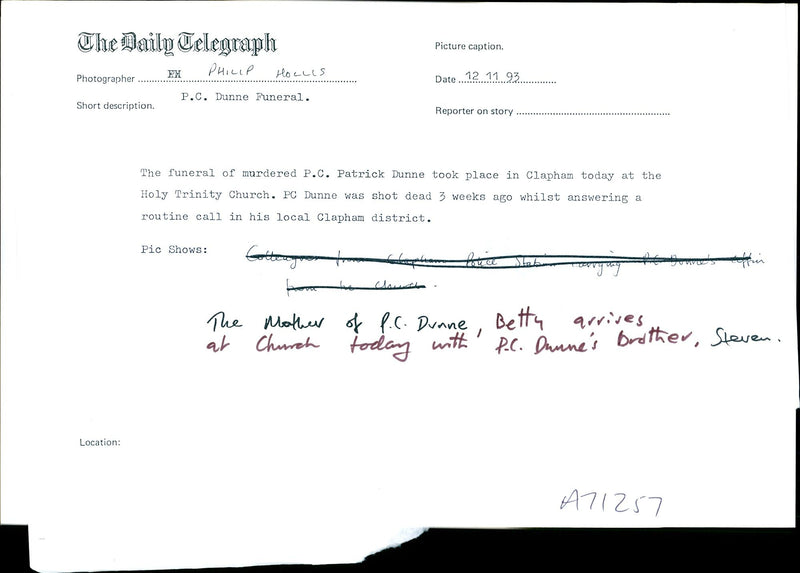 The Daily Telegraph
Picture caption.
Photographer ..... FX PHILIP HOLLIS
Date ...12 11 93...
Short description. P.C. Dunne Funeral.
Reporter on story .....
The funeral of murdered P.C. Patrick Dunne took place in Clapham today at the
Holy Trinity Church. PC Dunne was shot dead 3 weeks ago whilst answering a
routine call in his local Clapham district.
Pic Shows: Colleagues from Clapham Police Station carrying P.C. Dunne's coffin
from the Church.
The Mother of P.C. Dunne, Betty arrives
at Church today with P.C. Dunne's Brother, Steven.
Location:
A71257